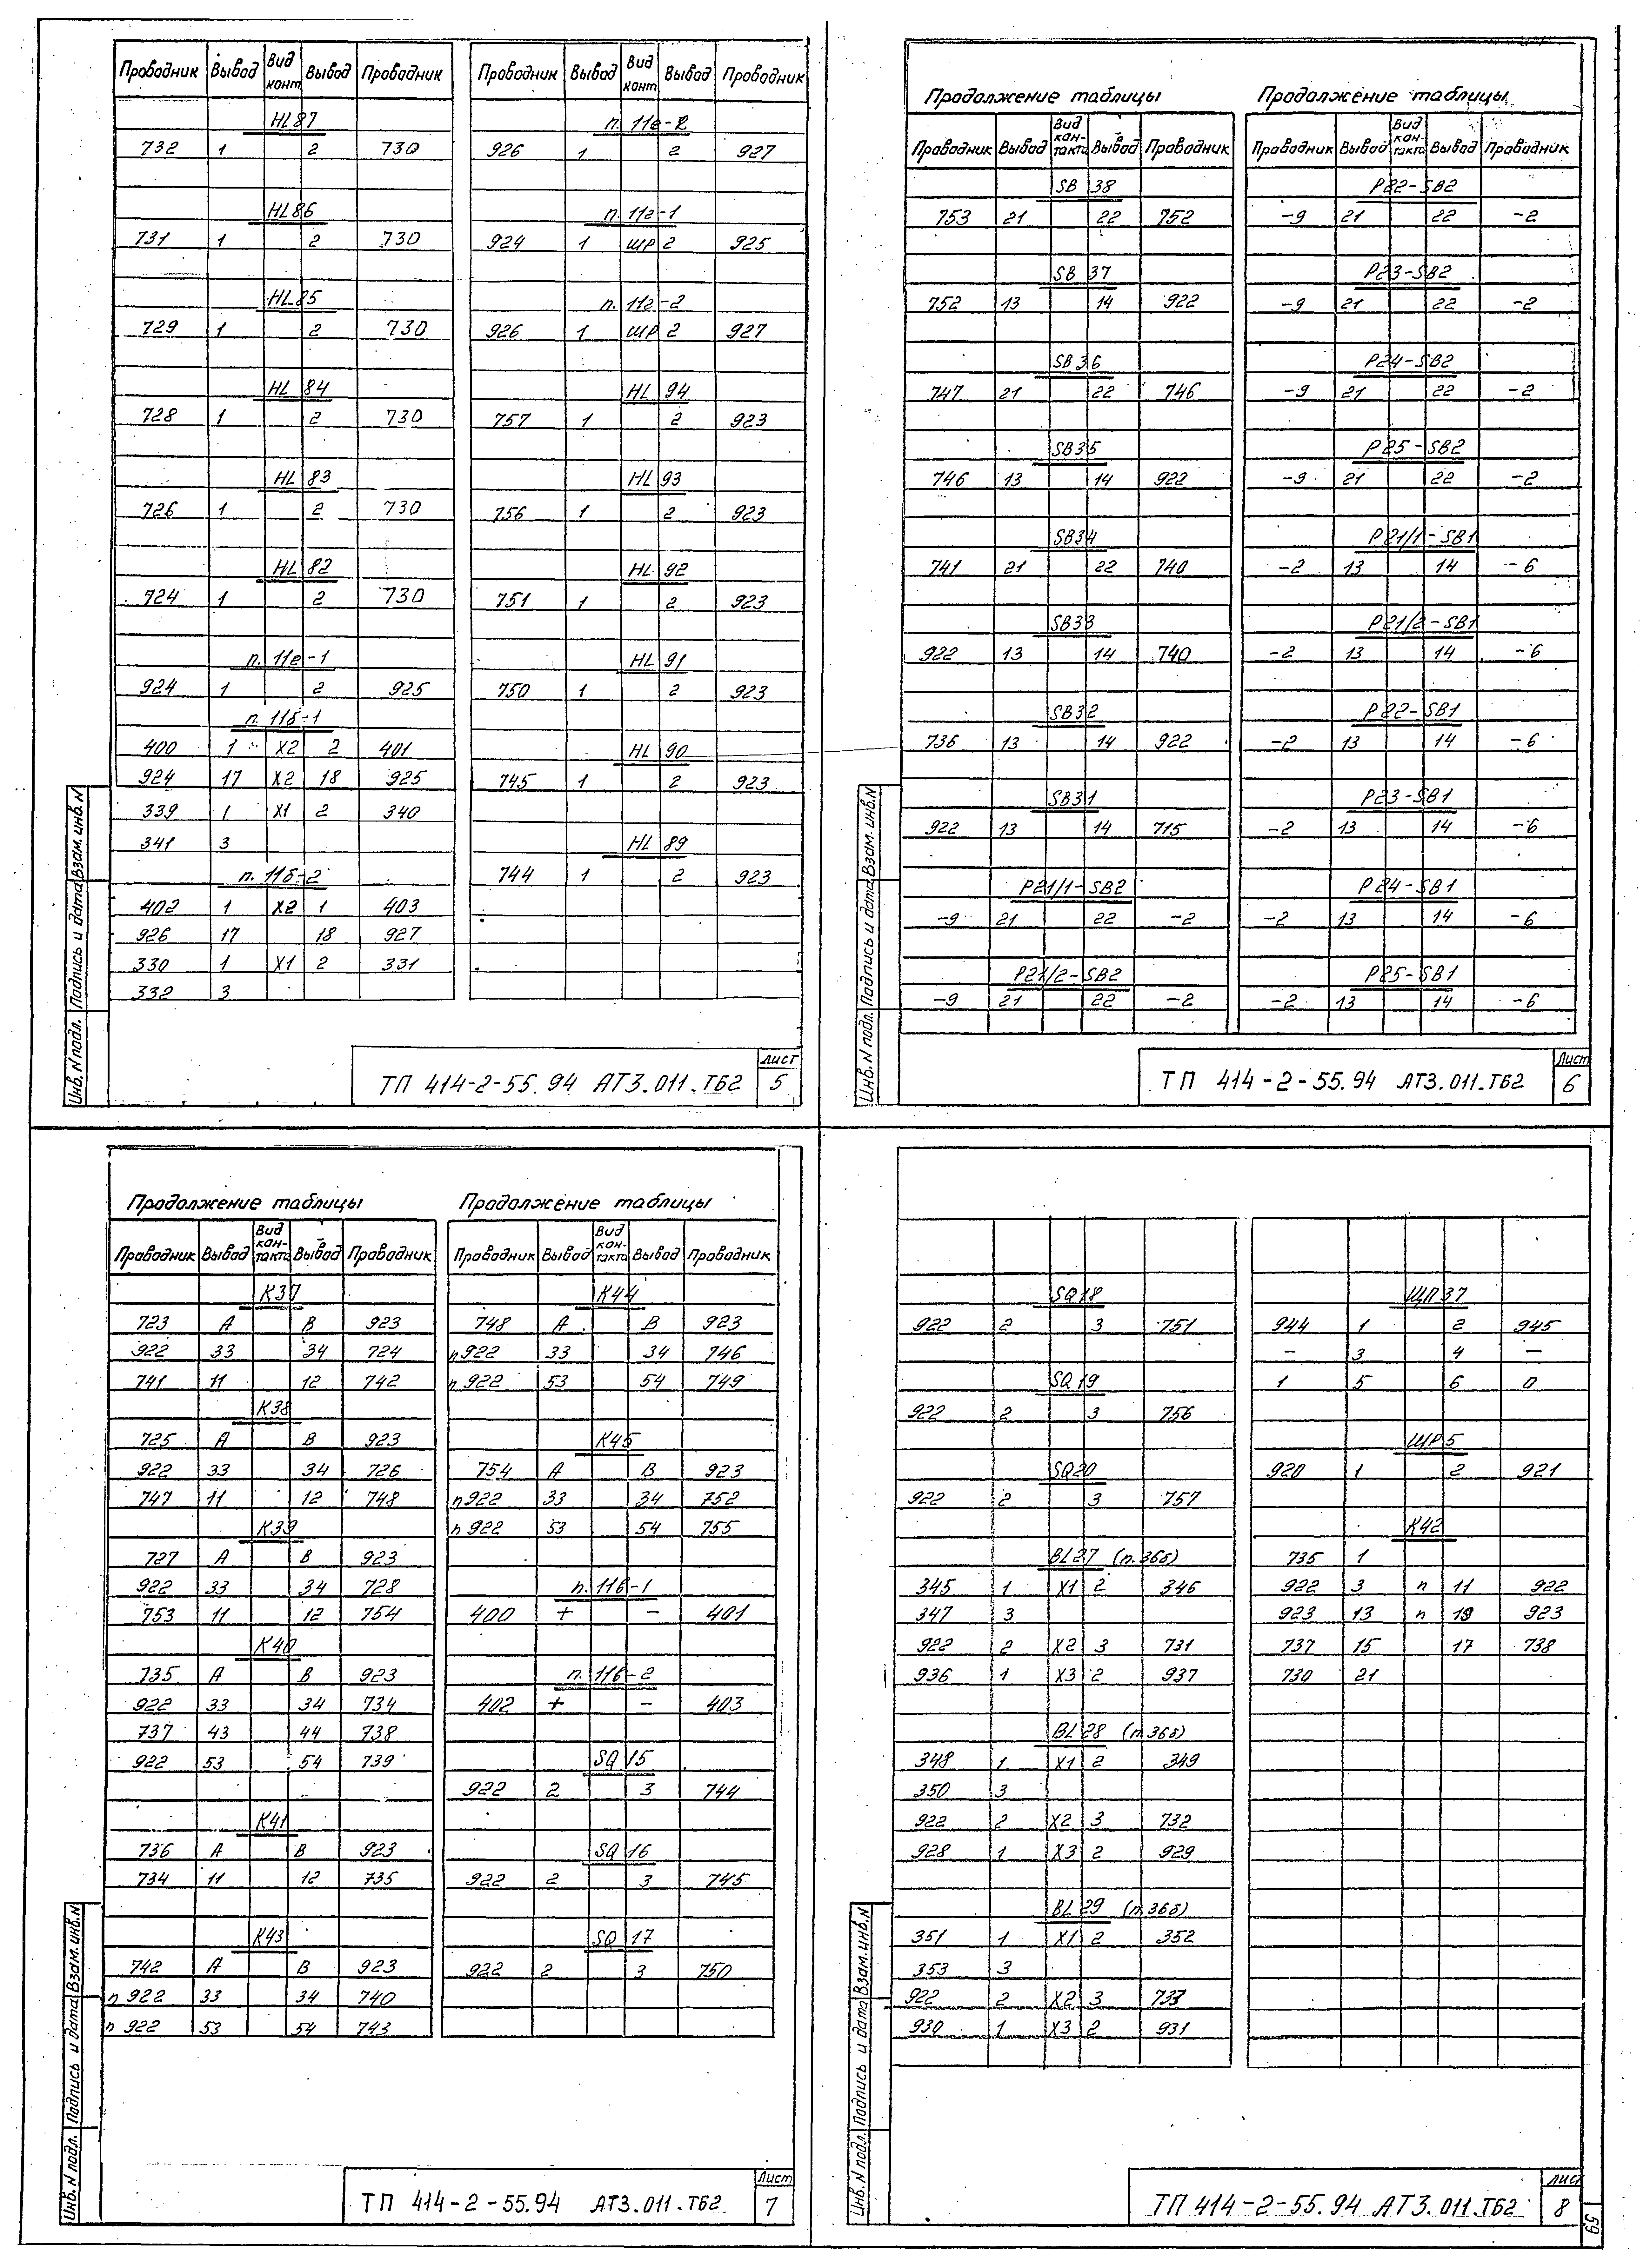 Проводник Вывод Вид конт Вывод Проводник
HL87
732 1 2 730
HL86
731 1 2 730
HL85
729 1 2 730
HL 84
728 1 2 730
HL 83
726 1 2 730
HL 82
724 1 2 730
п. 11е-1
924 1 2 925
п. 11б-1
400 1 X2 2 401
924 17 X2 18 925
339 1 X1 2 340
341 3
п. 11б-2
402 1 X2 1 403
926 17 18 927
330 1 X1 2 331
332 3
Проводник Вывод Вид конт. Вывод Проводник
п. 11е-2
926 1 2 927
п. 11г-1
924 1 ШР 2 925
п. 11г-2
926 1 ШР 2 927
HL 94
757 1 2 923
HL 93
756 1 2 923
HL 92
751 1 2 923
HL 91
750 1 2 923
HL 90
745 1 2 923
HL 89
744 1 2 923
Инв. N подл. Подпись и дата Взам. инв. N
ТП 414-2-55.94 АТЗ.011.ТБ2
Лист
5
Продолжение таблицы
Проводник Вывод Вид кон-такта Вывод Проводник
SB 38
753 21 22 752
SB 37
752 13 14 922
SB36
747 21 22 746
SB35
746 13 14 922
SB34
741 21 22 740
SB33
922 13 14 740
SB32
736 13 14 922
SB31
922 13 14 715
P21/1-SB2
-9 21 22 -2
P21/2-SB2
-9 21 22 -2
Продолжение таблицы
Проводник Вывод Вид кон-такта Вывод Проводник
P22-SB2
-9 21 22 -2
P23-SB2
-9 21 22 -2
P24-SB2
-9 21 22 -2
P25-SB2
-9 21 22 -2
P21/1-SB1
-2 13 14 -6
P21/2-SB1
-2 13 14 -6
P22-SB1
-2 13 14 -6
P23-SB1
-2 13 14 -6
P24-SB1
-2 13 14 -6
P25-SB1
-2 13 14 -6
Инв. N подл. Подпись и дата Взам. инв. N
ТП 414-2-55.94 АТЗ.011.ТБ2
Лист
6
Продолжение таблицы
Проводник Вывод Вид кон-такта Вывод Проводник
К37
723 А В 923
922 33 34 724
741 11 12 742
К38
725 А В 923
922 33 34 726
747 11 12 748
К39
727 А В 923
922 33 34 728
753 11 12 754
К40
735 А В 923
922 33 34 734
737 43 44 738
922 53 54 739
К41
736 А В 923
734 11 12 735
К43
742 А В 923
п 922 33 34 740
п 922 53 54 743
Продолжение таблицы
Проводник Вывод Вид кон-такта Вывод Проводник
К44
748 А В 923
п922 33 34 746
п 922 53 54 749
К45
754 А В 923
п922 33 34 752
п 922 53 54 755
п. 11в-1
400 + - 401
п. 11в-2
402 + - 403
SQ 15
922 2 3 744
SQ 16
922 2 3 745
SQ 17
922 2 3 750
Инв. N подл. Подпись и дата Взам. инв. N
ТП 414-2-55.94 АТЗ.011.ТБ2
Лист
7
SQ18
922 2 3 751
SQ 19
922 2 3 756
SQ20
922 2 3 757
BL27 (п.36б)
345 1 X1 2 346
347 3
922 2 X2 3 731
936 1 X3 2 937
BL 28 (п.36б)
348 1 X1 2 349
350 3
922 2 X2 3 732
928 1 X3 2 929
BL 29 (п.36б)
351 1 X1 2 352
353 3
922 2 X2 3 733
930 1 X3 2 931
ЩП37
944 1 2 945
- 3 4 -
1 5 6 0
ШР5
920 1 2 921
К42
735 1
922 3 п 11 922
923 13 п 19 923
737 15 17 738
730 21
Инв. N подл. Подпись и дата Взам. инв. N
ТП 414-2-55.94 АТЗ.011.ТБ2
Лист
8
59